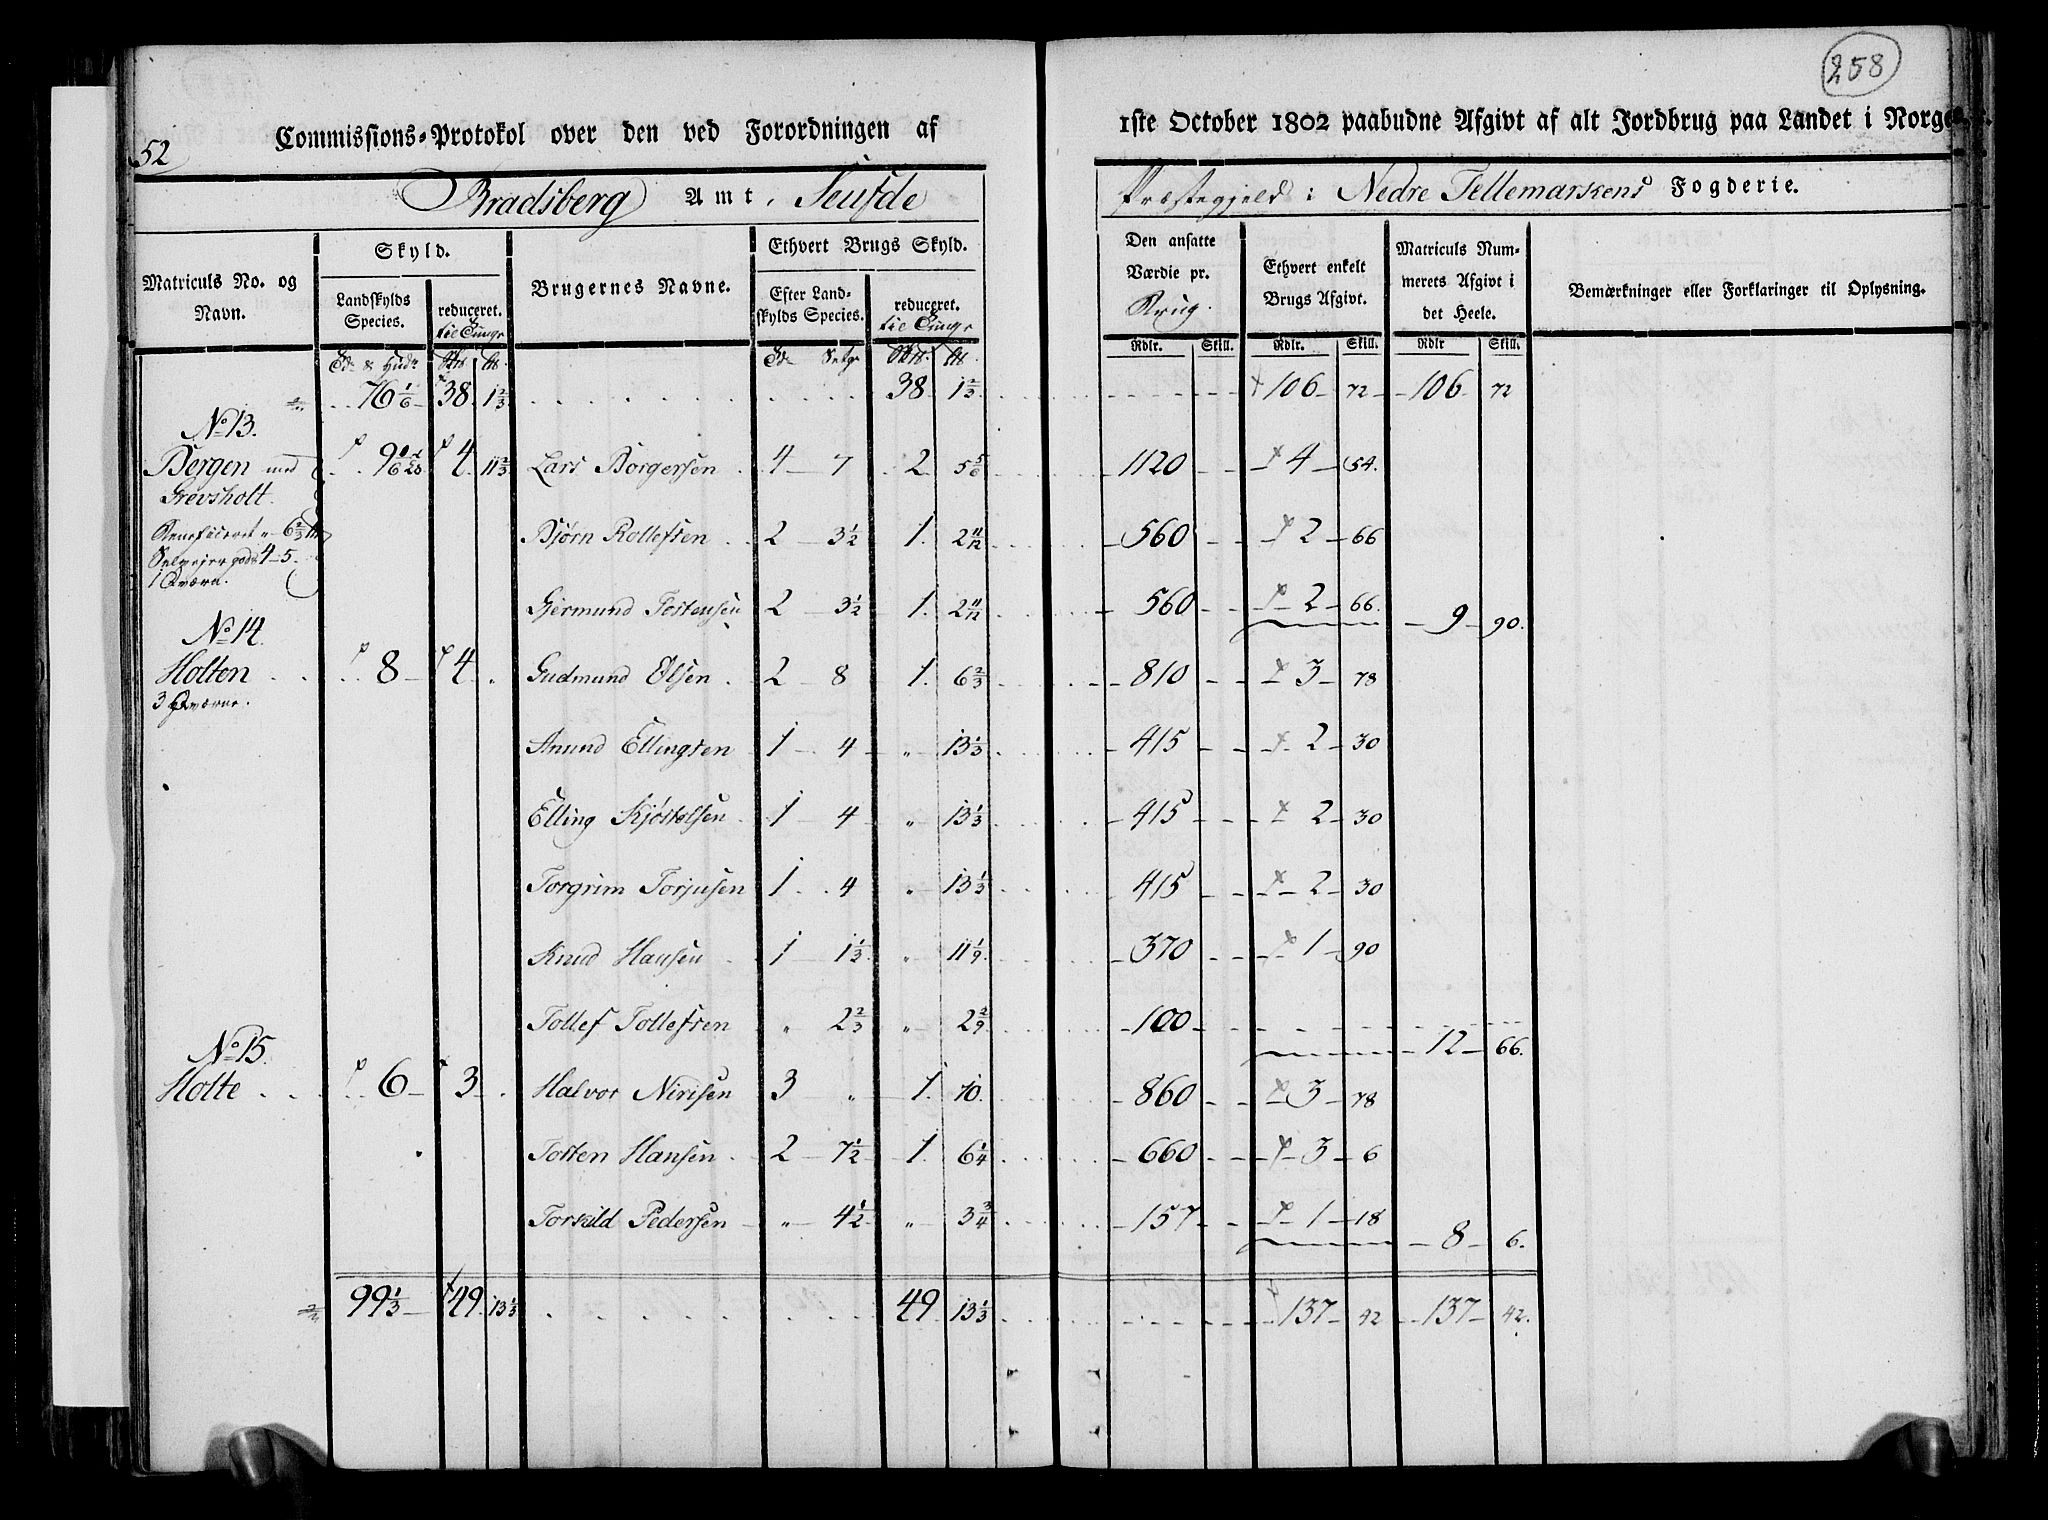 258
52
Commissions-Protokol over den ved Forordningen af 1ste October 1802 paabudne Afgivt af alt Jordbrug paa Landet i Norge.
Bradsberg Amt, Seufde Præstegjeld i Nedre Tellemarskens Fogderie.
Matriculs No. og Navn.
Skyld.
Landskylds Species.
reduceret. til Tunge
Brugernes Navne.
Ethvert Brugs Skyld.
Efter Landskylds Species.
reduceret. til Tunge
Den ansatte Værdie pr. Brug.
Ethvert enkelt Brugs Afgivt.
Matriculs Nummerets Afgivt i det Heele.
Bemærkninger eller Forklaringer til Oplysning.
Rdlr. Skill. Rdlr. Skill. Rdlr Skill.
76 1/6 38. 1 2/3 38 1 2/3 106 72 106 72
No 13.
Bergen med 4. 11 2/3 Lars Borgersen 4 7 2 5 5/6 1120 4 54.
Grevsholt.
Beneficeret 6 2/3
Bjørn Rollefsen 2 3 1/2 1. 2 11/12 560 2 66
Selvejergods 4-5.
1 Qværn.
Gjermund Tostensen 2 3 1/2 1. 2 11/12 560 2 66. 9 90.
No 14.
Holten 8 4 Gudmund Olsen 2 8 1. 6 2/3 810 3 78
3 Qværne.
Anund Ellingsen 1 4 " 13 1/3 415 2 30
Elling Kjøstolsen 1 4 " 13 1/3 415 2 30
Torgrim Torjusen 1 4 " 13 1/3 415 2 30
Knud Hansen 1 1 1/3 " 11 1/9 370 1 90
Tollef Tollefsen " 2 2/3 " 2 2/9 100 12 66.
No 15.
Holte 6 3 Halvor Nirisen 3 " 1. 10. 860 3 78
Tosten Hansen 2 7 1/2 1. 6 1/4 660 3 6
Torkild Pedersen " 4 1/2 " 3 3/4 157 1 18 8 6.
99 1/3 49. 13 1/3 49 13 1/3 137 42 137 42.